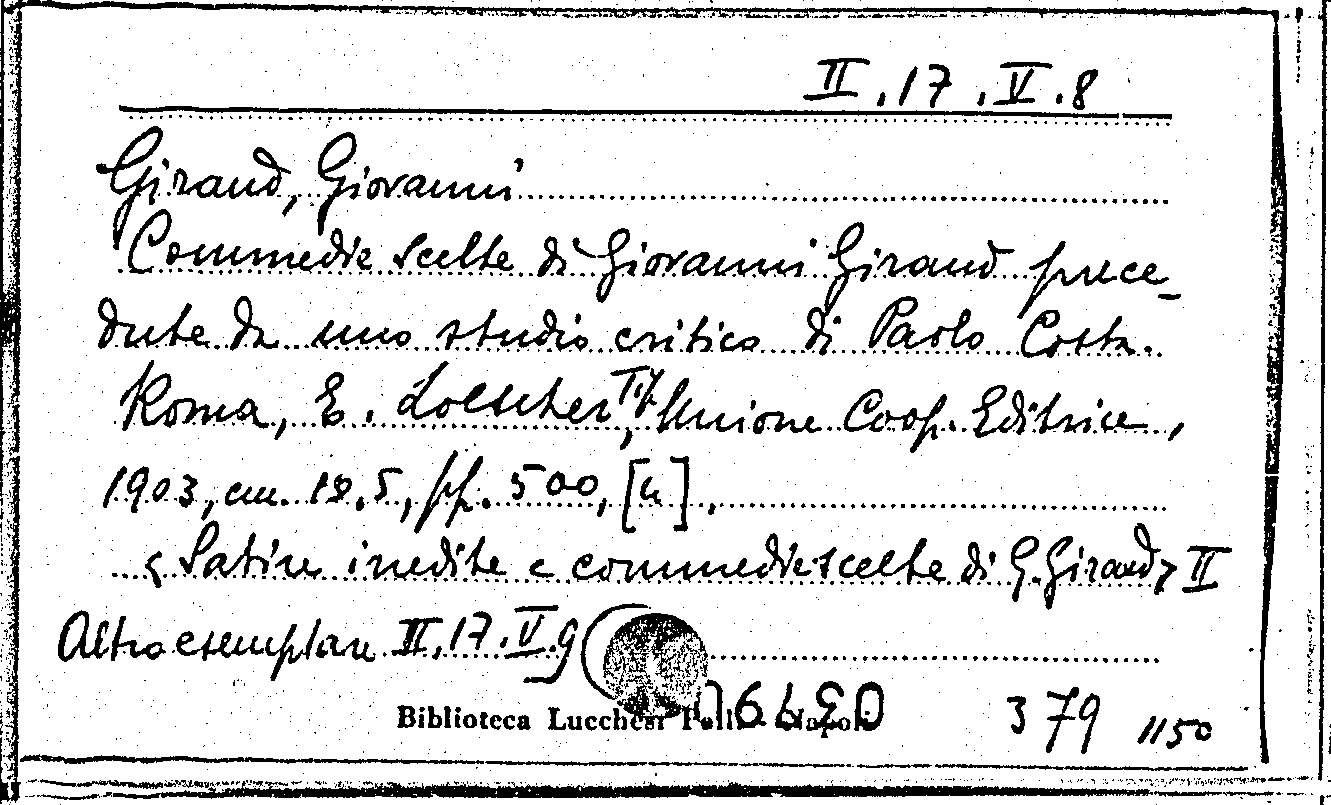 II.17.V.8
Giraud, Giovanni
Commedie scelte di Giovanni Giraud prece-
dute da uno studio critico di Paolo Costa.
Roma, E. Loescher, Unione Coop. Editrice,
1903, cm. 18.5, pp. 500, [4].
< Satire inedite e commedie scelte di G. Giraud > II
Altro esemplare II.17.V.9
Biblioteca Lucchesi Palli - Napoli
379 1150